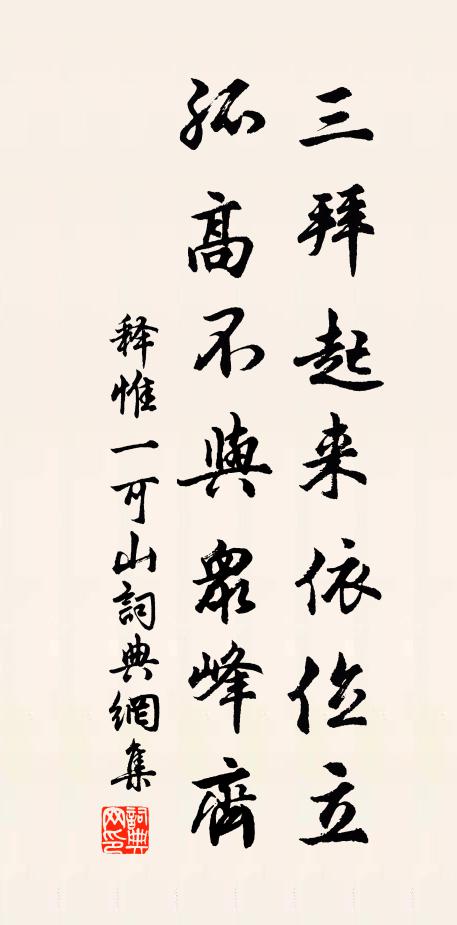 三拜起来依位立
孤高不與眾峰齊
释惟一可山詞典網集
詞典網印